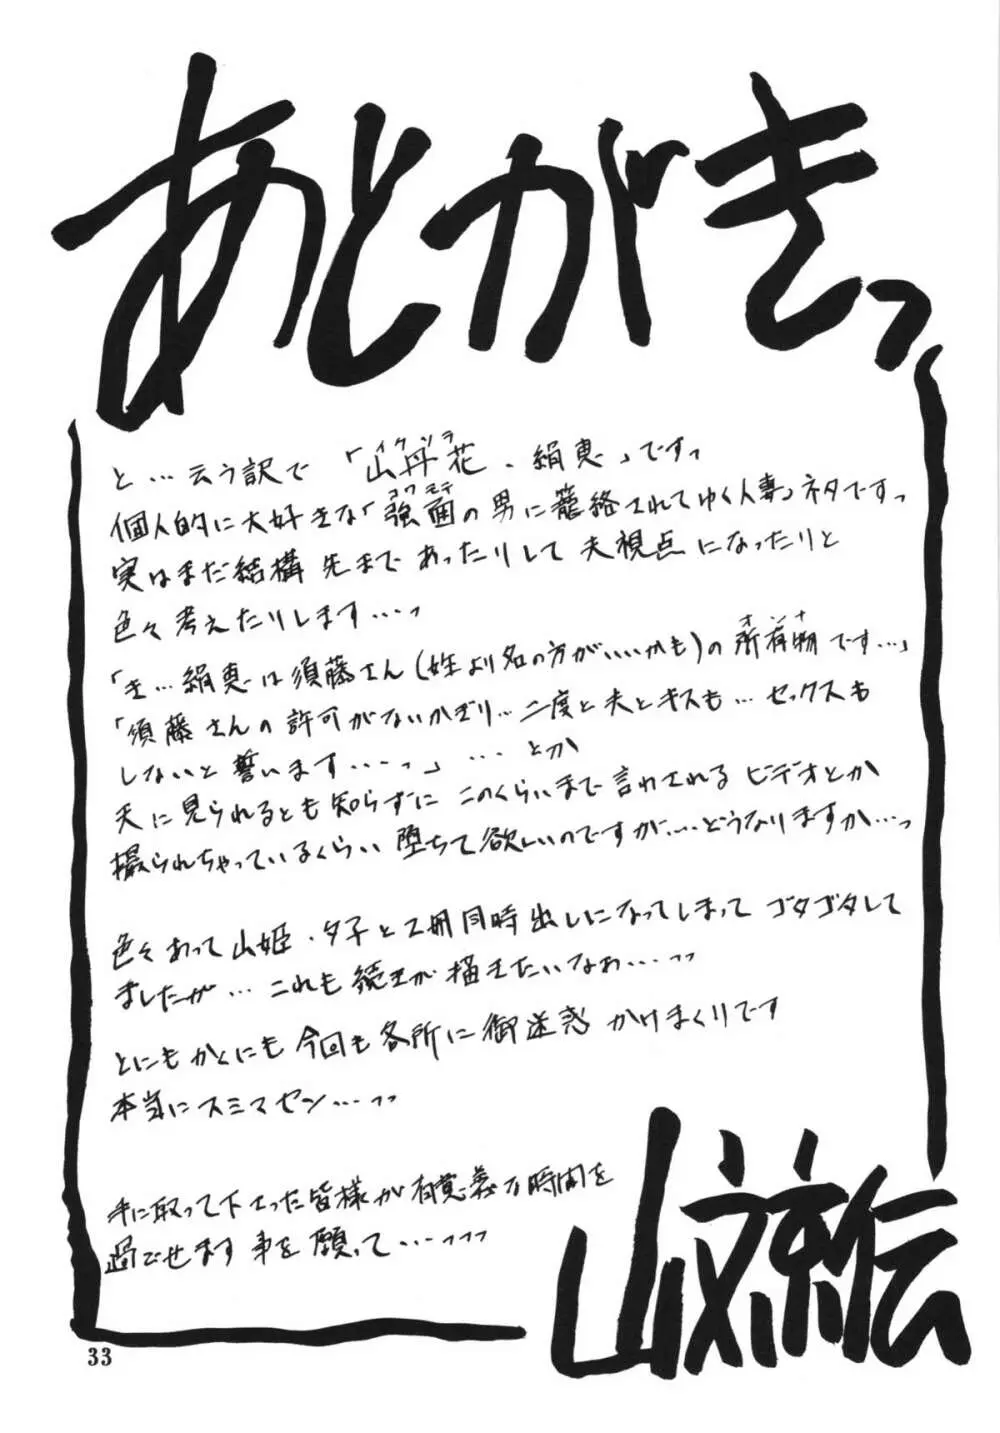 あとがきっ
と…云う訳で「山丹花・絹恵」ですっ
イクソラ
個人的に大好きな「強面の男に籠絡されてゆく人妻」ネタですっ
コワモテ
実はまだ結構先まであったりして夫視点になったりと
色々考えたりします…っ
「き…絹恵は須藤さん(姓より名の方がいいかも)の所有物です…」
オンナ
「須藤さんの許可がないかぎり…二度と夫とキスも…セックスも
しないと誓います……っ」…とか
夫に見られるとも知らずにこのくらいまで言わされるビデオとか
撮られちゃっているくらい堕ちて欲しいのですが…どうなりますか…っ
色々あって山姫・夕子と2冊同時出しになってしまってゴタゴタして
ましたが…これも続きが描きたいなぁ…っっ
とにもかくにも今回も各所に御迷惑かけまくりです
本当にスミマセン…っっ
手に取って下さった皆様が有意義な時間を
過ごせます事を願って…っっっ
山文京伝
33